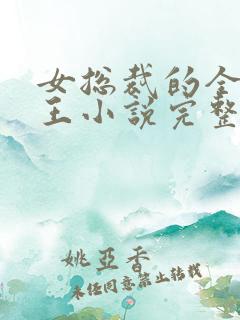 女总裁的全
王小说完整
姚亚香
未经同意禁止转载